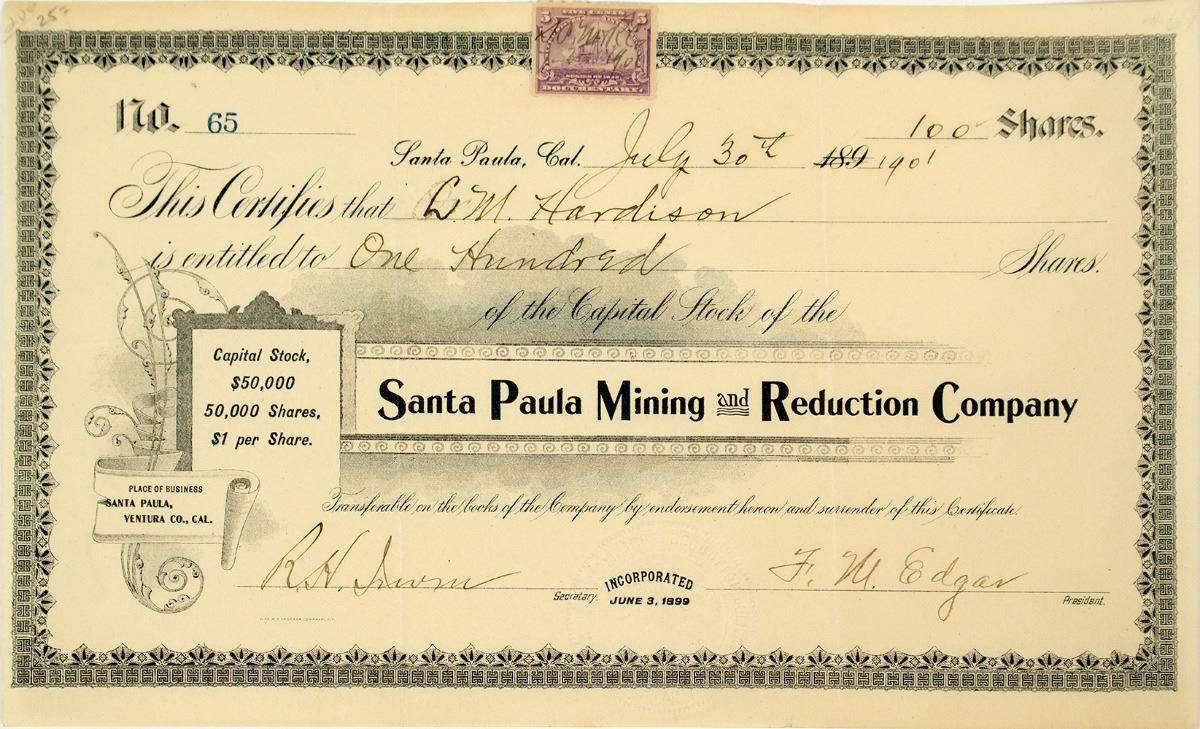 25
FIVE CENTS
5 5
SERIES OF 1898
DOCUMENTARY
No. 65
100 Shares.
Santa Paula, Cal. July 30th 189 1901
This Certifies that L. M. Hardison
is entitled to One Hundred Shares.
of the Capital Stock of the
Capital Stock,
$50,000
50,000 Shares,
$1 per Share.
Santa Paula Mining and Reduction Company
PLACE OF BUSINESS
SANTA PAULA,
VENTURA CO., CAL.
Transferable on the books of the Company by endorsement hereon and surrender of this Certificate.
R. H. Irwin Secretary.
INCORPORATED
JUNE 3, 1899
F. M. Edgar President.